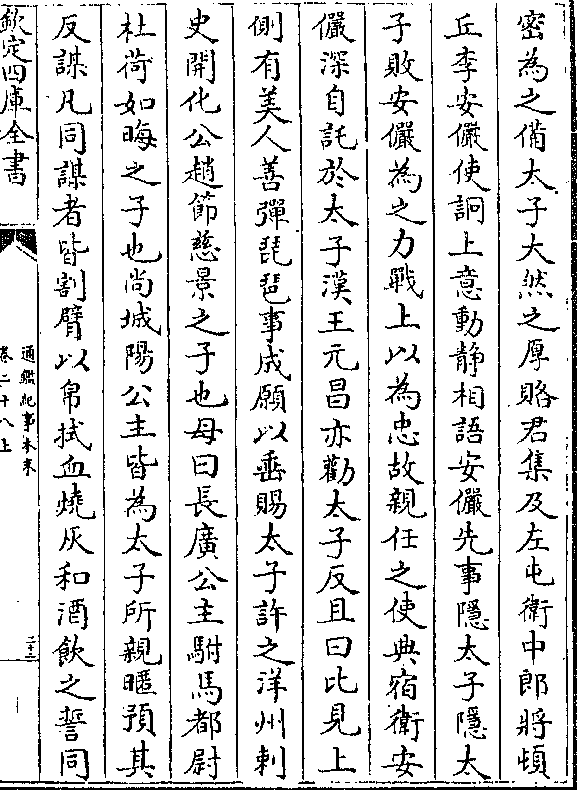 密為之備太子大然之厚賂君集及左屯衛中郎將頓
丘李安儼使詗上意動静相語安儼先事隱太子隱太
子敗安儼為之力戰上以為忠故親任之使典宿衛安
儼深自託於太子漢王元昌亦勸太子反且曰比見上
側有美人善彈琵琶事成願以垂賜太子許之洋州刺
史開化公趙節慈景之子也母曰長廣公主駙馬都尉
杜荷如晦之子也尚城陽公主皆為太子所親暱預其
反謀凡同謀者皆割臂以帛拭血燒灰和酒飲之誓同
欽定四庫全書
通鑑紀事本末
卷二十八上
二十三